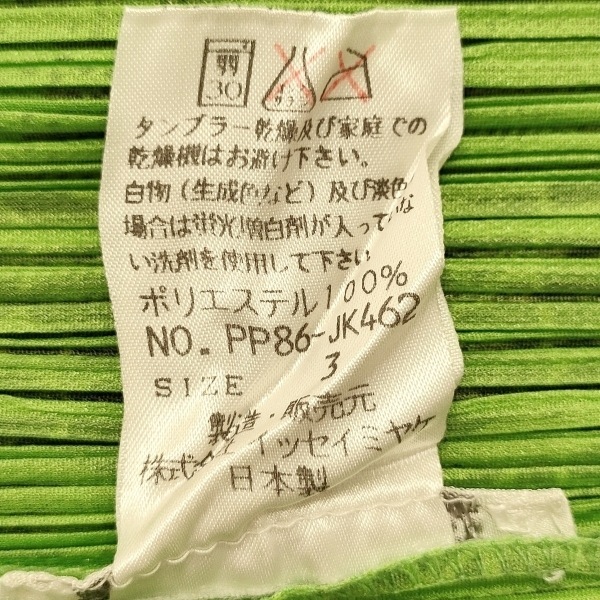 弱
30
サラシ
タンブラー乾燥及び家庭での
乾燥機はお避け下さい。
白物（生成色など）及び淡色
場合は蛍光増白剤が入っていな
い洗剤を使用して下さい
ポリエステル100%
NO. PP86-JK462
SIZE 3
製造・販売元
株式会社イッセイミヤケ
日本製